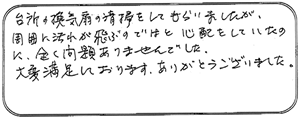 台所の換気扇の清掃をしてもらいましたが、
周囲に汚れが飛ぶのではと心配をしていたの
に、全く問題ありませんでした。
大変満足しております。ありがとうございました。